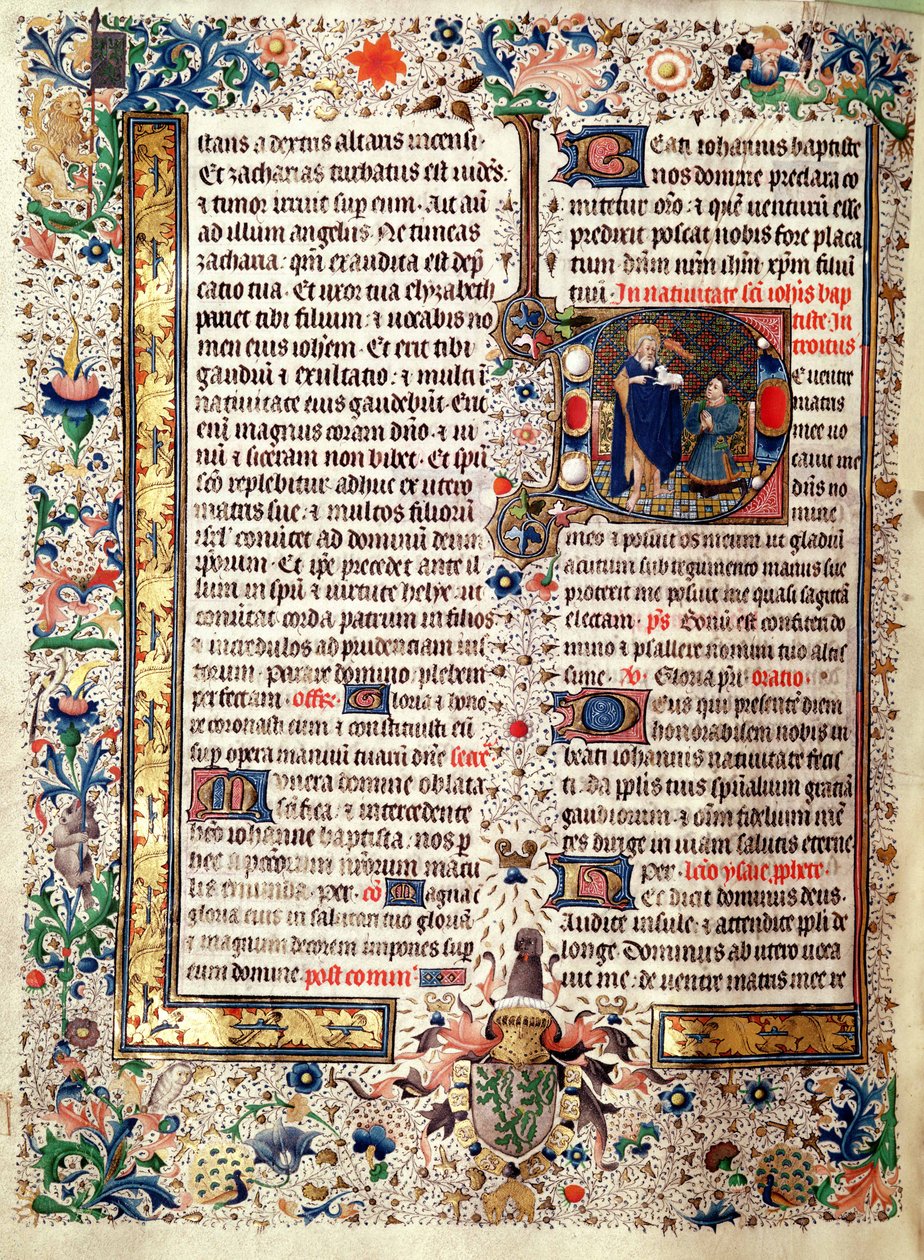 stans a dextris altaris incensi·
Et zacharias turbatus est vidēs·
⁊ timor irruit sup eum· Ait aū
ad illum angelus· Ne timeas
zacharia· qm̄ exaudita est dep̄
catio tua· Et uxor tua elyzabeth
pariet tibi filium· ⁊ vocabis no
men eius iohem̄· Et erit tibi
gaudiū ⁊ exultatio· ⁊ multi ī
nativitate eius gaudebūt· Erit
enī magnus coram dn̄o· ⁊ vi
nū ⁊ siceram non bibet· Et spū
sc̄o replebitur adhuc ex utero
matris sue· ⁊ multos filiorū
isrl̄ cōvertet ad dominū deum
ip̄orum· Et ip̄e precedet ante il
lum in spū ⁊ virtute helye· ut
cōvertat corda patrum in filios
⁊ incredulos ad prudentiam ius
torum· Parare domino plebem
perfectam· offr̄· Gloria ⁊ hono
re coronasti eum· ⁊ constituisti eū
sup opera manuū tuarū dn̄e secr̄·
Munera domine oblata
sc̄ifica· ⁊ intercedente
bt̄o iohanne baptista· nos p
hec a peccorum nr̄orum macu
lis emunda· Per· cō Magna ē
gloria eius in salutari tuo gloriā
⁊ magnum decorem impones sup
eum domine· post commū·
Beati iohannis baptiste
nos domine preclara co
mitetur or̄o· ⁊ quē venturū esse
predixit poscat nobis fore placa
tum· dn̄m nr̄m ihm̄ xp̄m filiū
tuū· In nativitate sc̄i ioh̄is bap
tiste· In
troitus·
De ventre
matris
mee vo
cavit me
dn̄s no
mine
meo ⁊ posuit os meum ut gladiū
acutum sub tegumento manus sue
protexit me posuit me quasi sagittā
electam· p̄s Bonū est confiteri do
mino ⁊ psallere nomini tuo altis
sime· ℣· Gloria pr̄i· oratio·
Deus qui presente diem
honorabilem nobis in
beati iohannis nativitate fecis
ti· da pp̄lis tuis spūalium gratiā
gaudiorum· ⁊ oīm fidelium mē
tes dirige in viam salutis eterne
Per· lc̄io ysaie pphete·
Hec dicit dominus deus·
Audite insule· ⁊ attendite pp̄li de
longe· Dominus ab utero voca
vit me· de ventre matris mee re